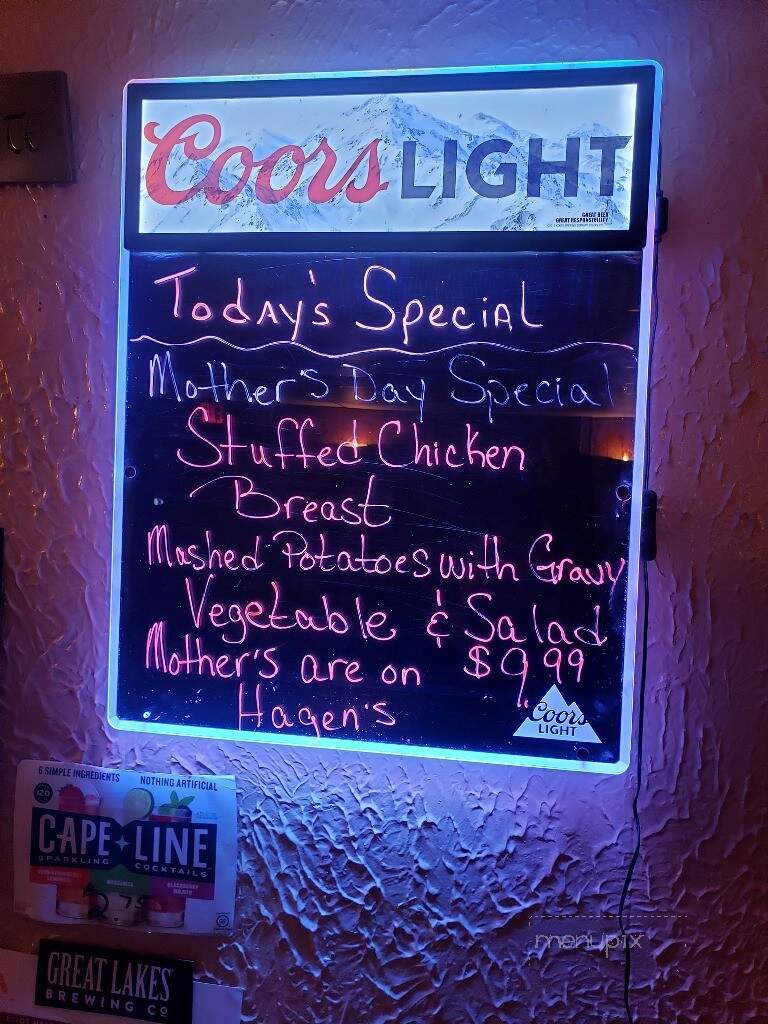 Coors LIGHT
GREAT BEER
GREAT RESPONSIBILITY
Today's Special
Mother's Day Special
Stuffed Chicken
Breast
Mashed Potatoes with Gravy
Vegetable & Salad
Mother's are on $9.99
Hagen's
Coors
LIGHT
6 SIMPLE INGREDIENTS NOTHING ARTIFICIAL
120
CAPE LINE
SPARKLING COCKTAILS
MARGARITA
BLACKBERRY
MOJITO
GREAT LAKES
BREWING CO
menupix